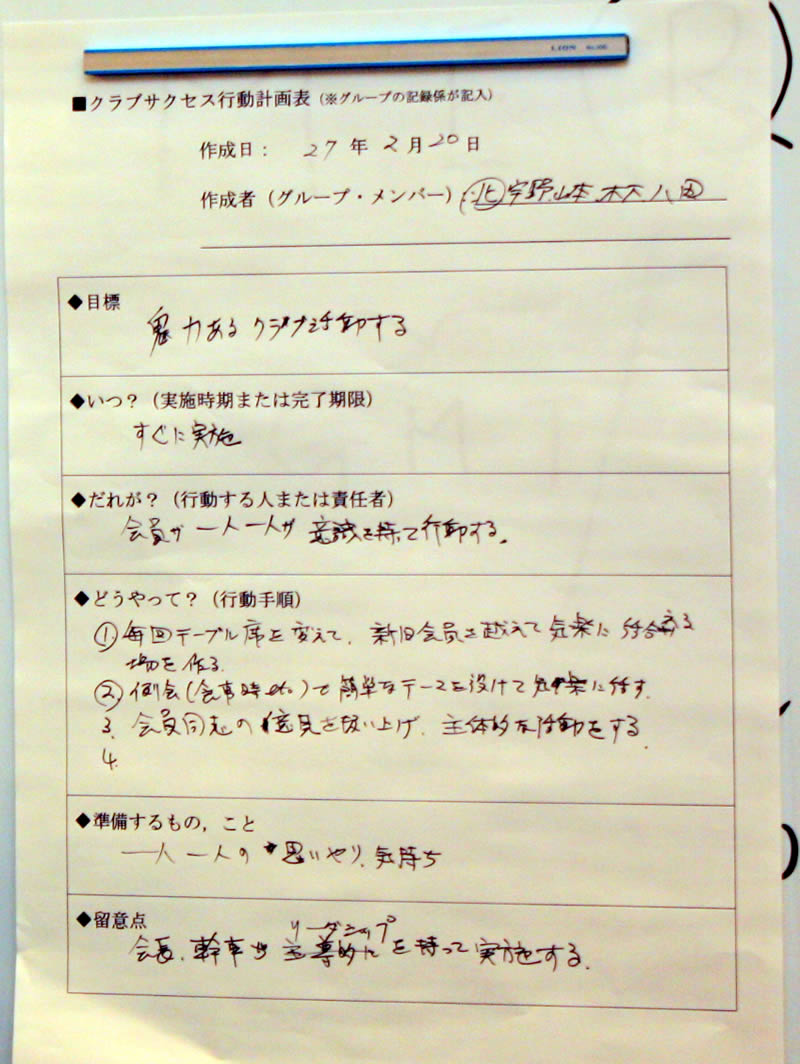 LION No.300
■クラブサクセス行動計画表（※グループの記録係が記入）
作成日： 27 年 2 月 20 日
作成者（グループ・メンバー） 北 宇野 山本 八田
◆目標
魅力あるクラブ活動する
◆いつ？（実施時期または完了期限）
すぐに実施
◆だれが？（行動する人または責任者）
会員が一人一人が意識を持って行動する。
◆どうやって？（行動手順）
① 毎回テーブル席を変えて、新旧会員を越えて気楽に
場を作る
② 例会（食事時etc）で簡単なテーマを設けて気楽に話す.
3. 会員同志の意見を吸い上げ、主体的な活動をする
4.
◆準備するもの，こと
一人一人の思いやり、気持ち
◆留意点
リーダシップ
会長、幹事が を持って実施する.